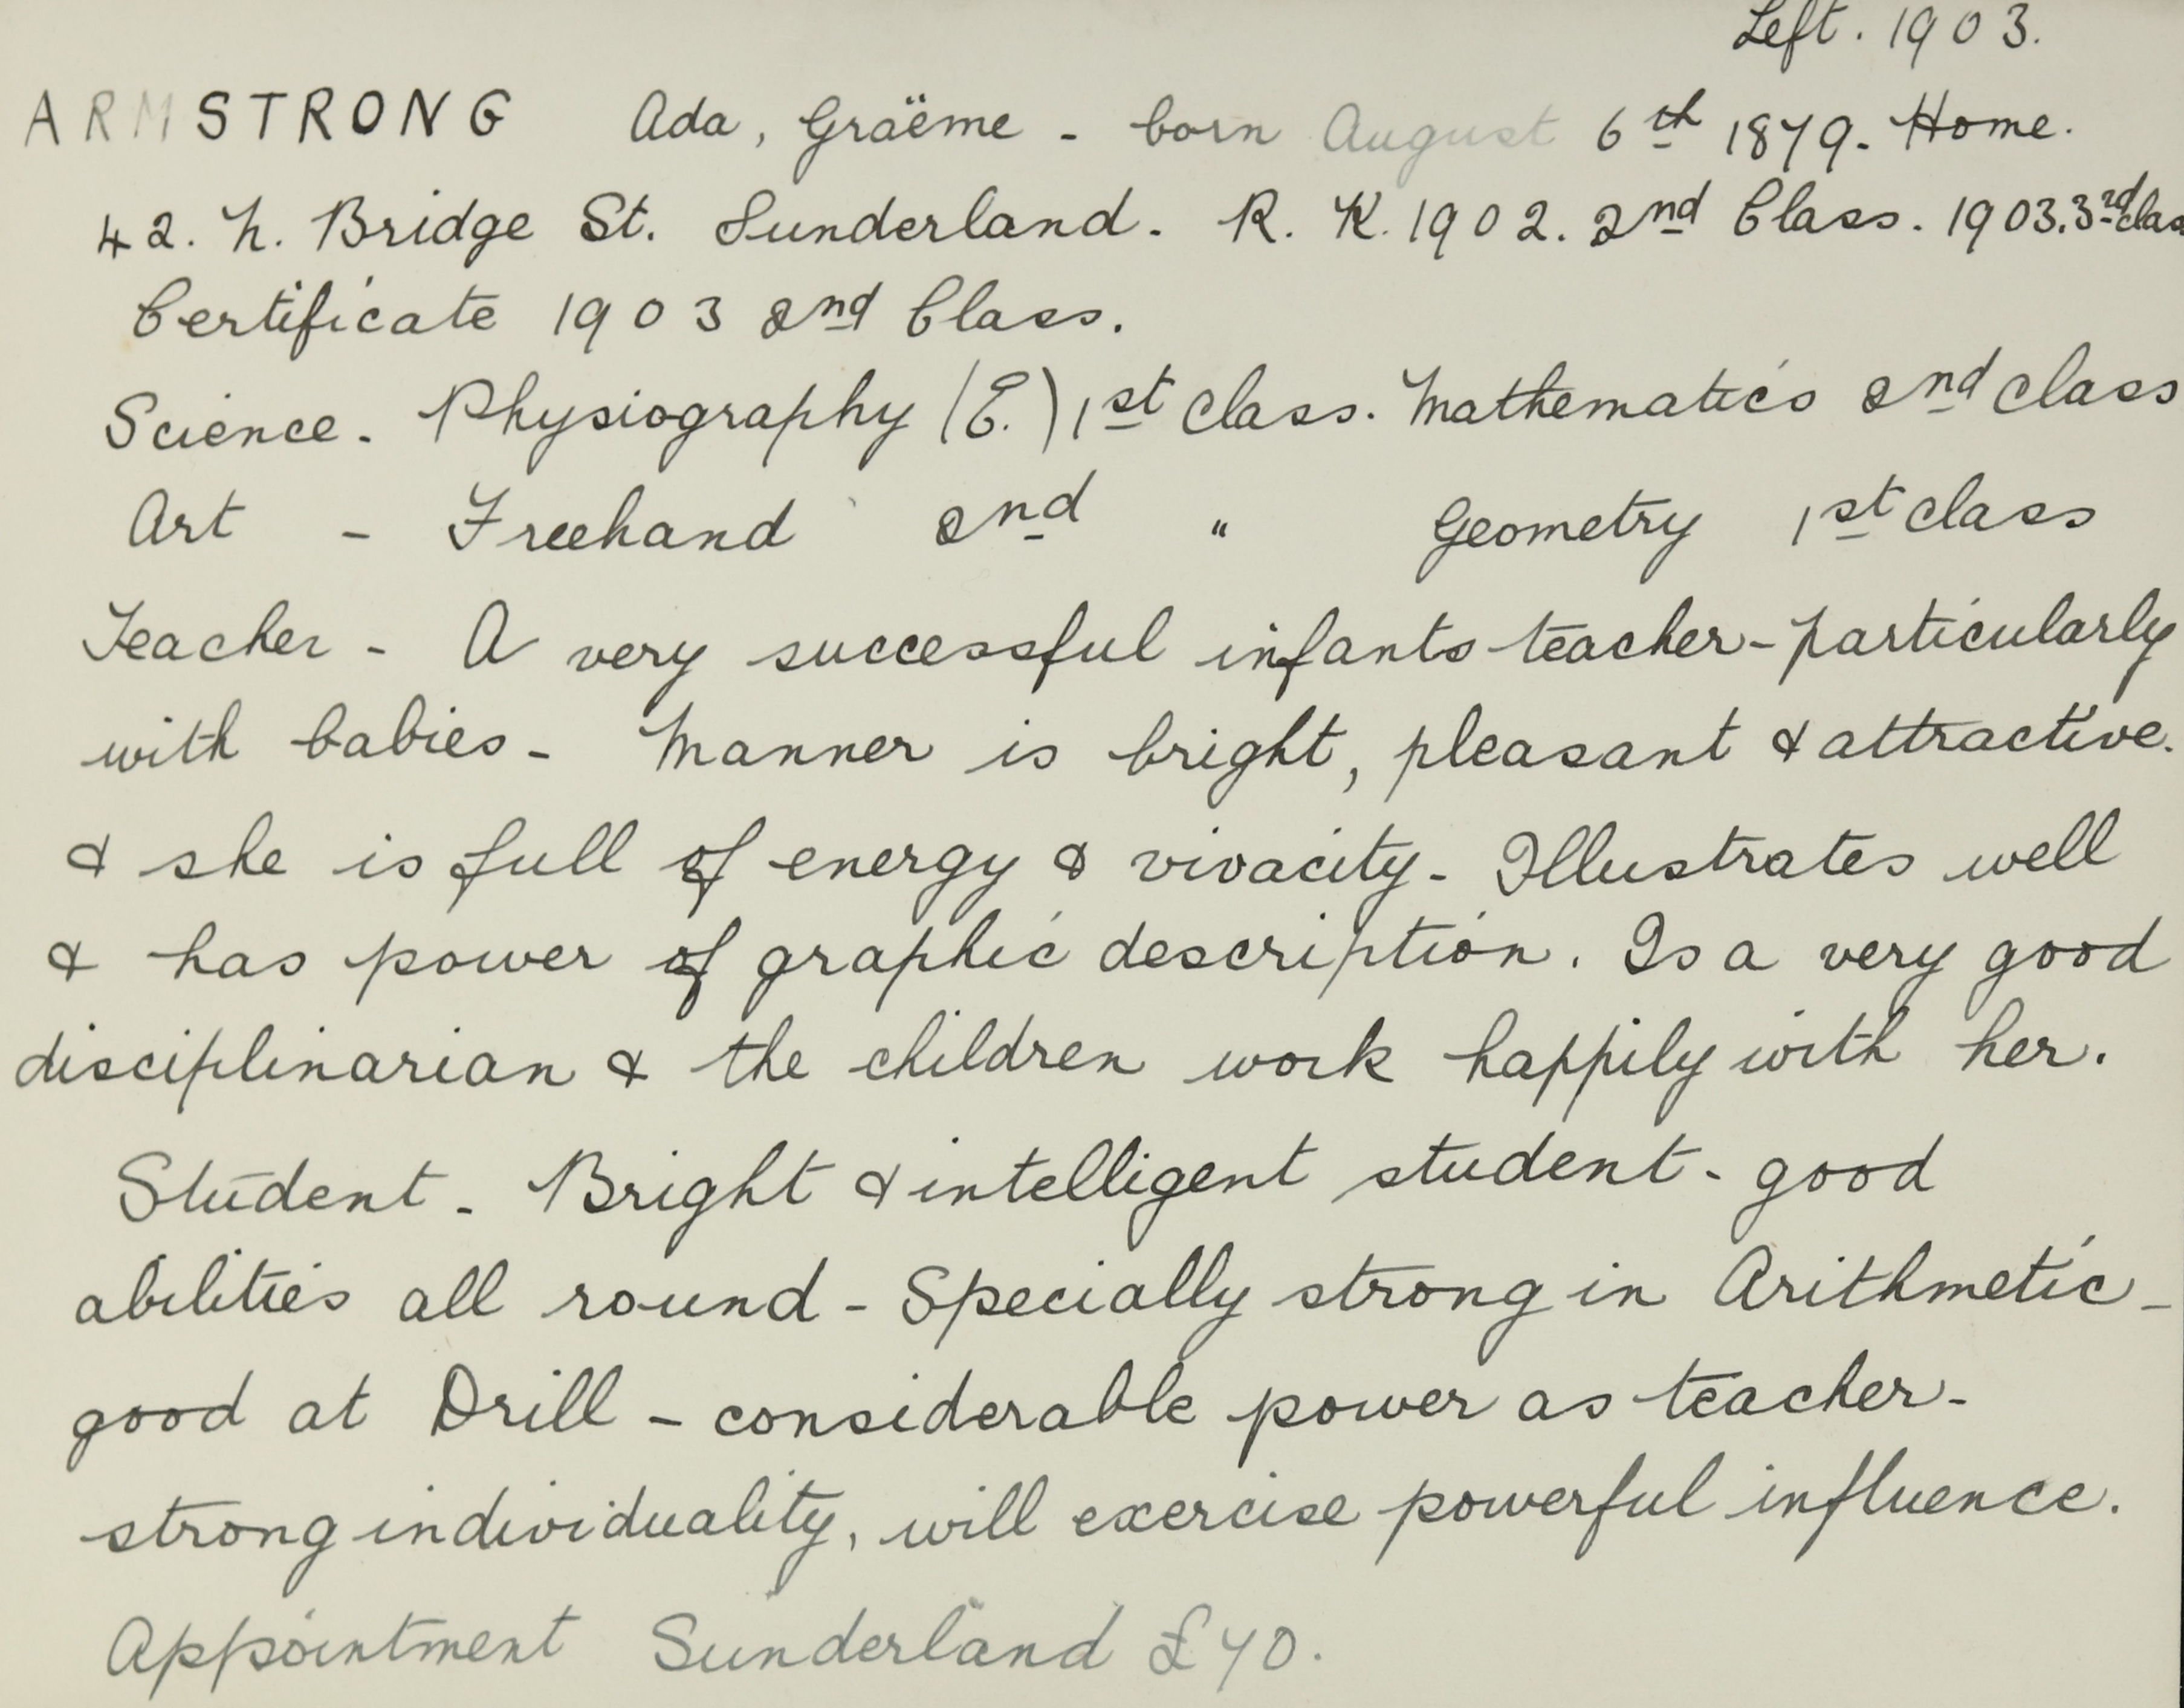 Left. 1903.
ARMSTRONG Ada, Graëme - born August 6th 1879. Home.
42. N. Bridge St. Sunderland. R. K. 1902. 2nd Class. 1903. 3rd clas
Certificate 1903 2nd Class.
Science. Physiography (E.) 1st class. Mathematics 2nd class
Art - Freehand 2nd " Geometry 1st class
Teacher - A very successful infants teacher - particularly
with babies - Manner is bright, pleasant & attractive.
& she is full of energy & vivacity - Illustrates well
& has power of graphic description. Is a very good
disciplinarian & the children work happily with her.
Student - Bright & intelligent student - good
abilities all round - Specially strong in Arithmetic -
good at Drill - considerable power as teacher -
strong individuality, will exercise powerful influence.
Appointment Sunderland £70.